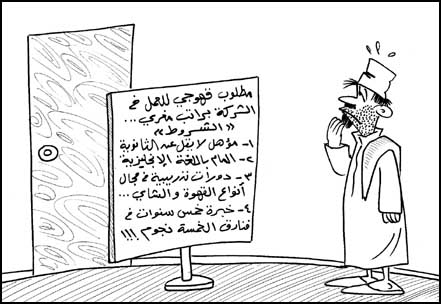 مطلوب قهوجي للعمل في
الشركة براتب مغري...
« الشروط »
١- مؤهل لا يقل عن الثانوية
٢- إلمام باللغة الإنجليزية
٣- دورات تدريبية في مجال
أنواع القهوة والشاي...
٤- خبرة خمس سنوات في
فنادق الخمسة نجوم !!!